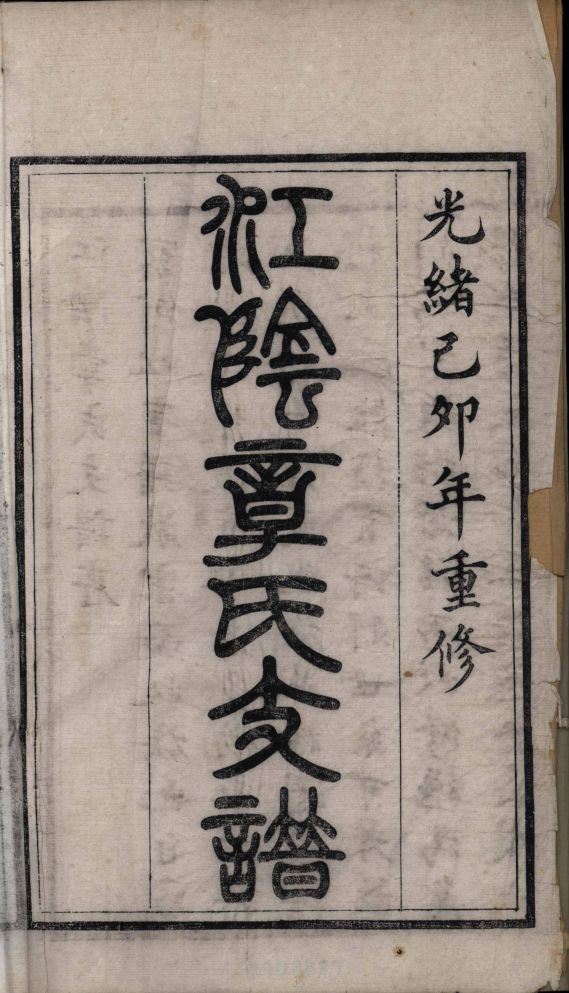 光緒己卯年重修
江陰章氏支譜